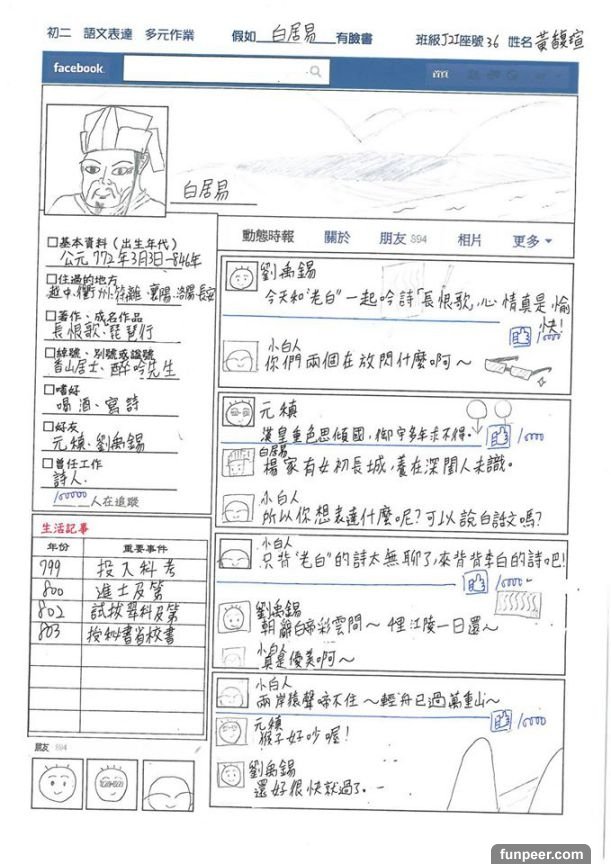 初二　語文表達　多元作業　假如 白居易 有臉書　班級J2I座號36 姓名黃馥瑄
facebook
首頁
白居易
動態時報　關於　朋友 894　相片　更多
□基本資料（出生年代）
公元772年3月3日-846年
□住過的地方
越中、衢州、符離、襄陽、洛陽、長安
□著作、成名作品
長恨歌、琵琶行
□綽號、別號或諡號
香山居士、醉吟先生
□嗜好
喝酒、寫詩
□好友
元稹、劉禹錫
□曾任工作
詩人.
100000人在追蹤
生活記事
年份　重要事件
799　投入科考
800　進士及第
802　試拔萃科及第
803　授秘書省校書
朋友 894
劉禹錫
今天和"老白"一起吟詩「長恨歌」,心情真是愉
快!
小白人
你們兩個在放閃什麼啊～
元稹
漢皇重色思傾國,御宇多年求不得。
白居易
楊家有女初長城,養在深閨人未識。
小白人
所以你想表達什麼呢?可以說白話文嗎?
小白人
只背"老白"的詩太無聊了,來背背李白的詩吧!
劉禹錫
朝辭白帝彩雲間～ 千里江陵一日還～
小白人
真是優美啊～
小白人
兩岸猿聲啼不住～輕舟已過萬重山～
元稹
猴子好吵喔!
劉禹錫
還好很快就過了.
funpeer.com